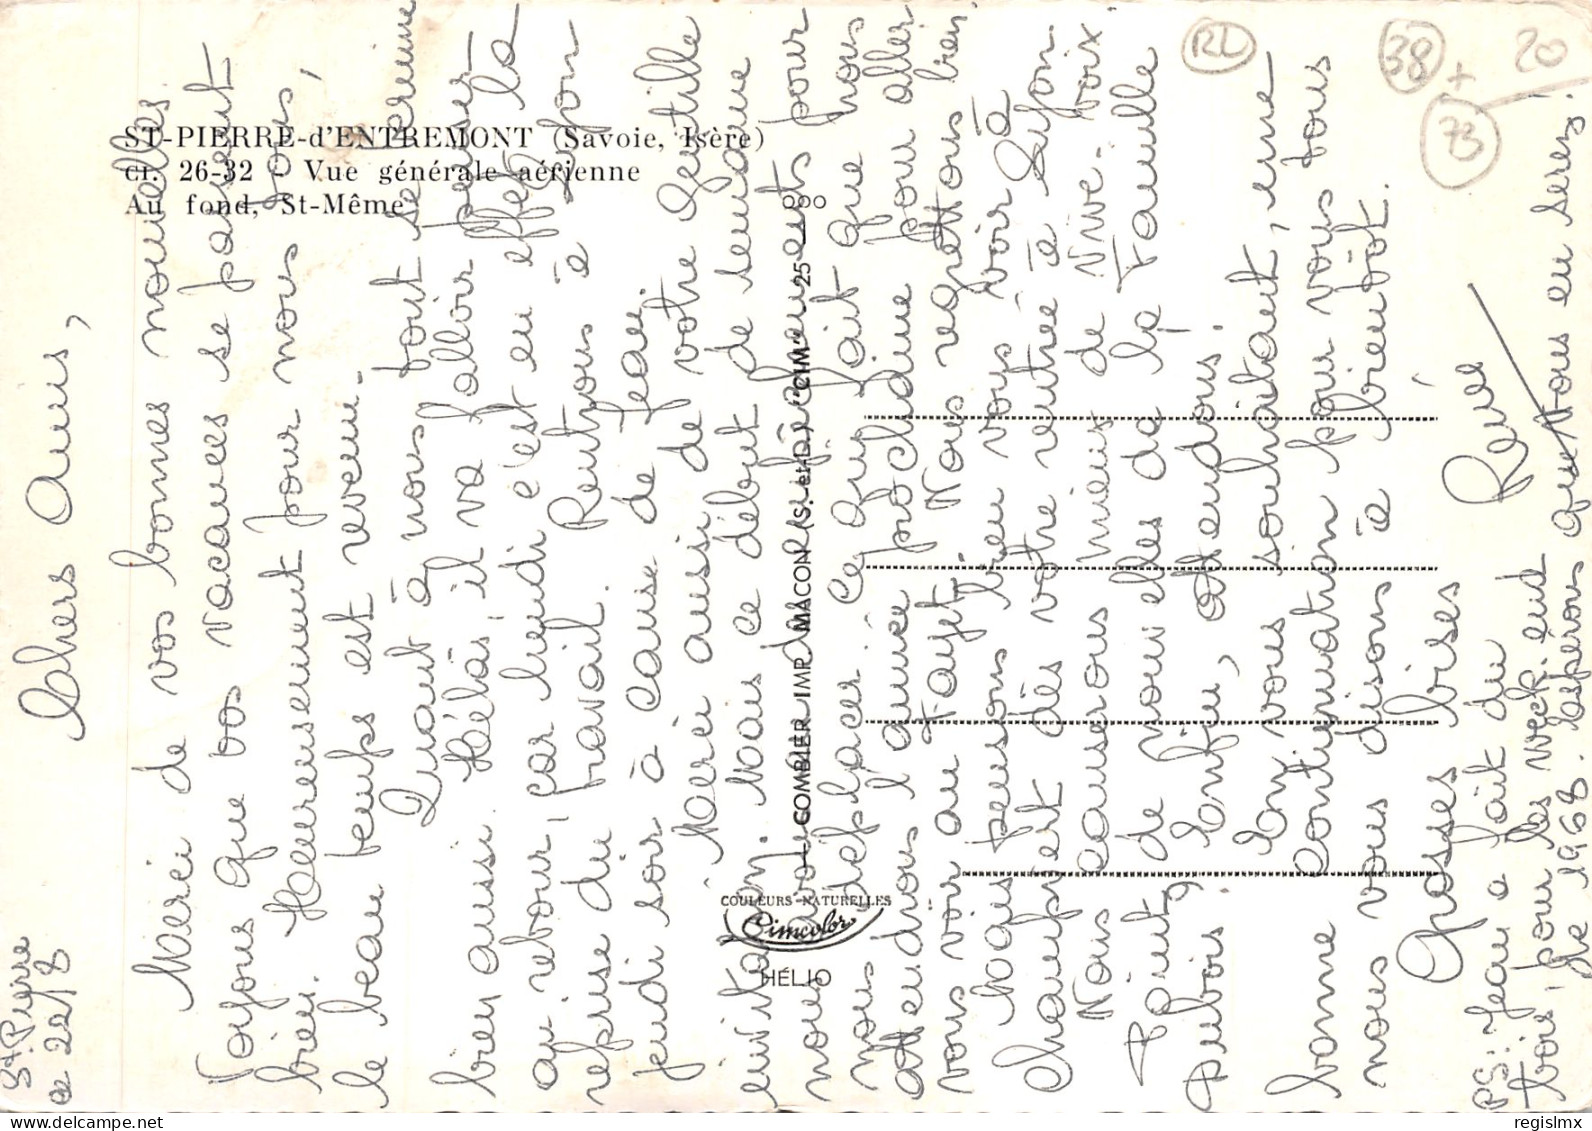 ST-PIERRE-d'ENTREMONT (Savoie, Isère)
CI. 26-32 - Vue générale aérienne
Au fond, St-Même
COMBIER IMP. MACON (S.-et-L.) "CIM"
25
COULEURS NATURELLES
Cimcolor
HÉLIO
RL
38 +
73
20
St. Pierre
le 22/8
Chers Amis,
Merci de vos bonnes nouvelles.
Voyons que vos vacances se passent
bien. Heureusement pour nous tous,
le beau temps est revenu.
Quant à nous tout se termine
bien aussi. Hélàs, il va falloir penser
au retour, car lundi c'est en effet la
reprise du travail. Rentrons à Lyon
jeudi soir à cause de Jean.
Merci aussi de votre gentille
invitation. Mais ce début de semaine
nous avons des empêchements pour
nous déplacer. Ce qui fait que nous
attendrons l'année prochaine pour aller
vous voir au Fayet. Nous regrettons bien.
Mais pensons bien vous voir à
Chaufvert dès votre rentrée à Lyon.
Nous causerons mieux de vive-voix
Point de nouvelles de la famille
Dubois. Enfin, attendons.
En vous souhaitant, une
bonne continuation pour vous tous
nous vous disons à bientôt.
Grosses bises
Renée
PS: Jean a fait du
bois, pour les week-end
de 1968. Espérons que vous en serez!
regislmx